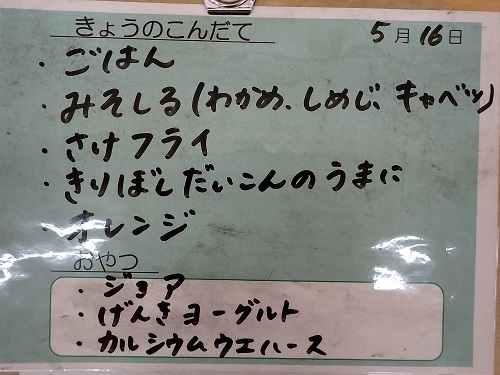 きょうのこんだて 5月16日
・ごはん
・みそしる(わかめ、しめじ、キャベツ)
・さけフライ
・きりぼしだいこんのうまに
・オレンジ
おやつ
・ジョア
・げんきヨーグルト
・カルシウムウエハース